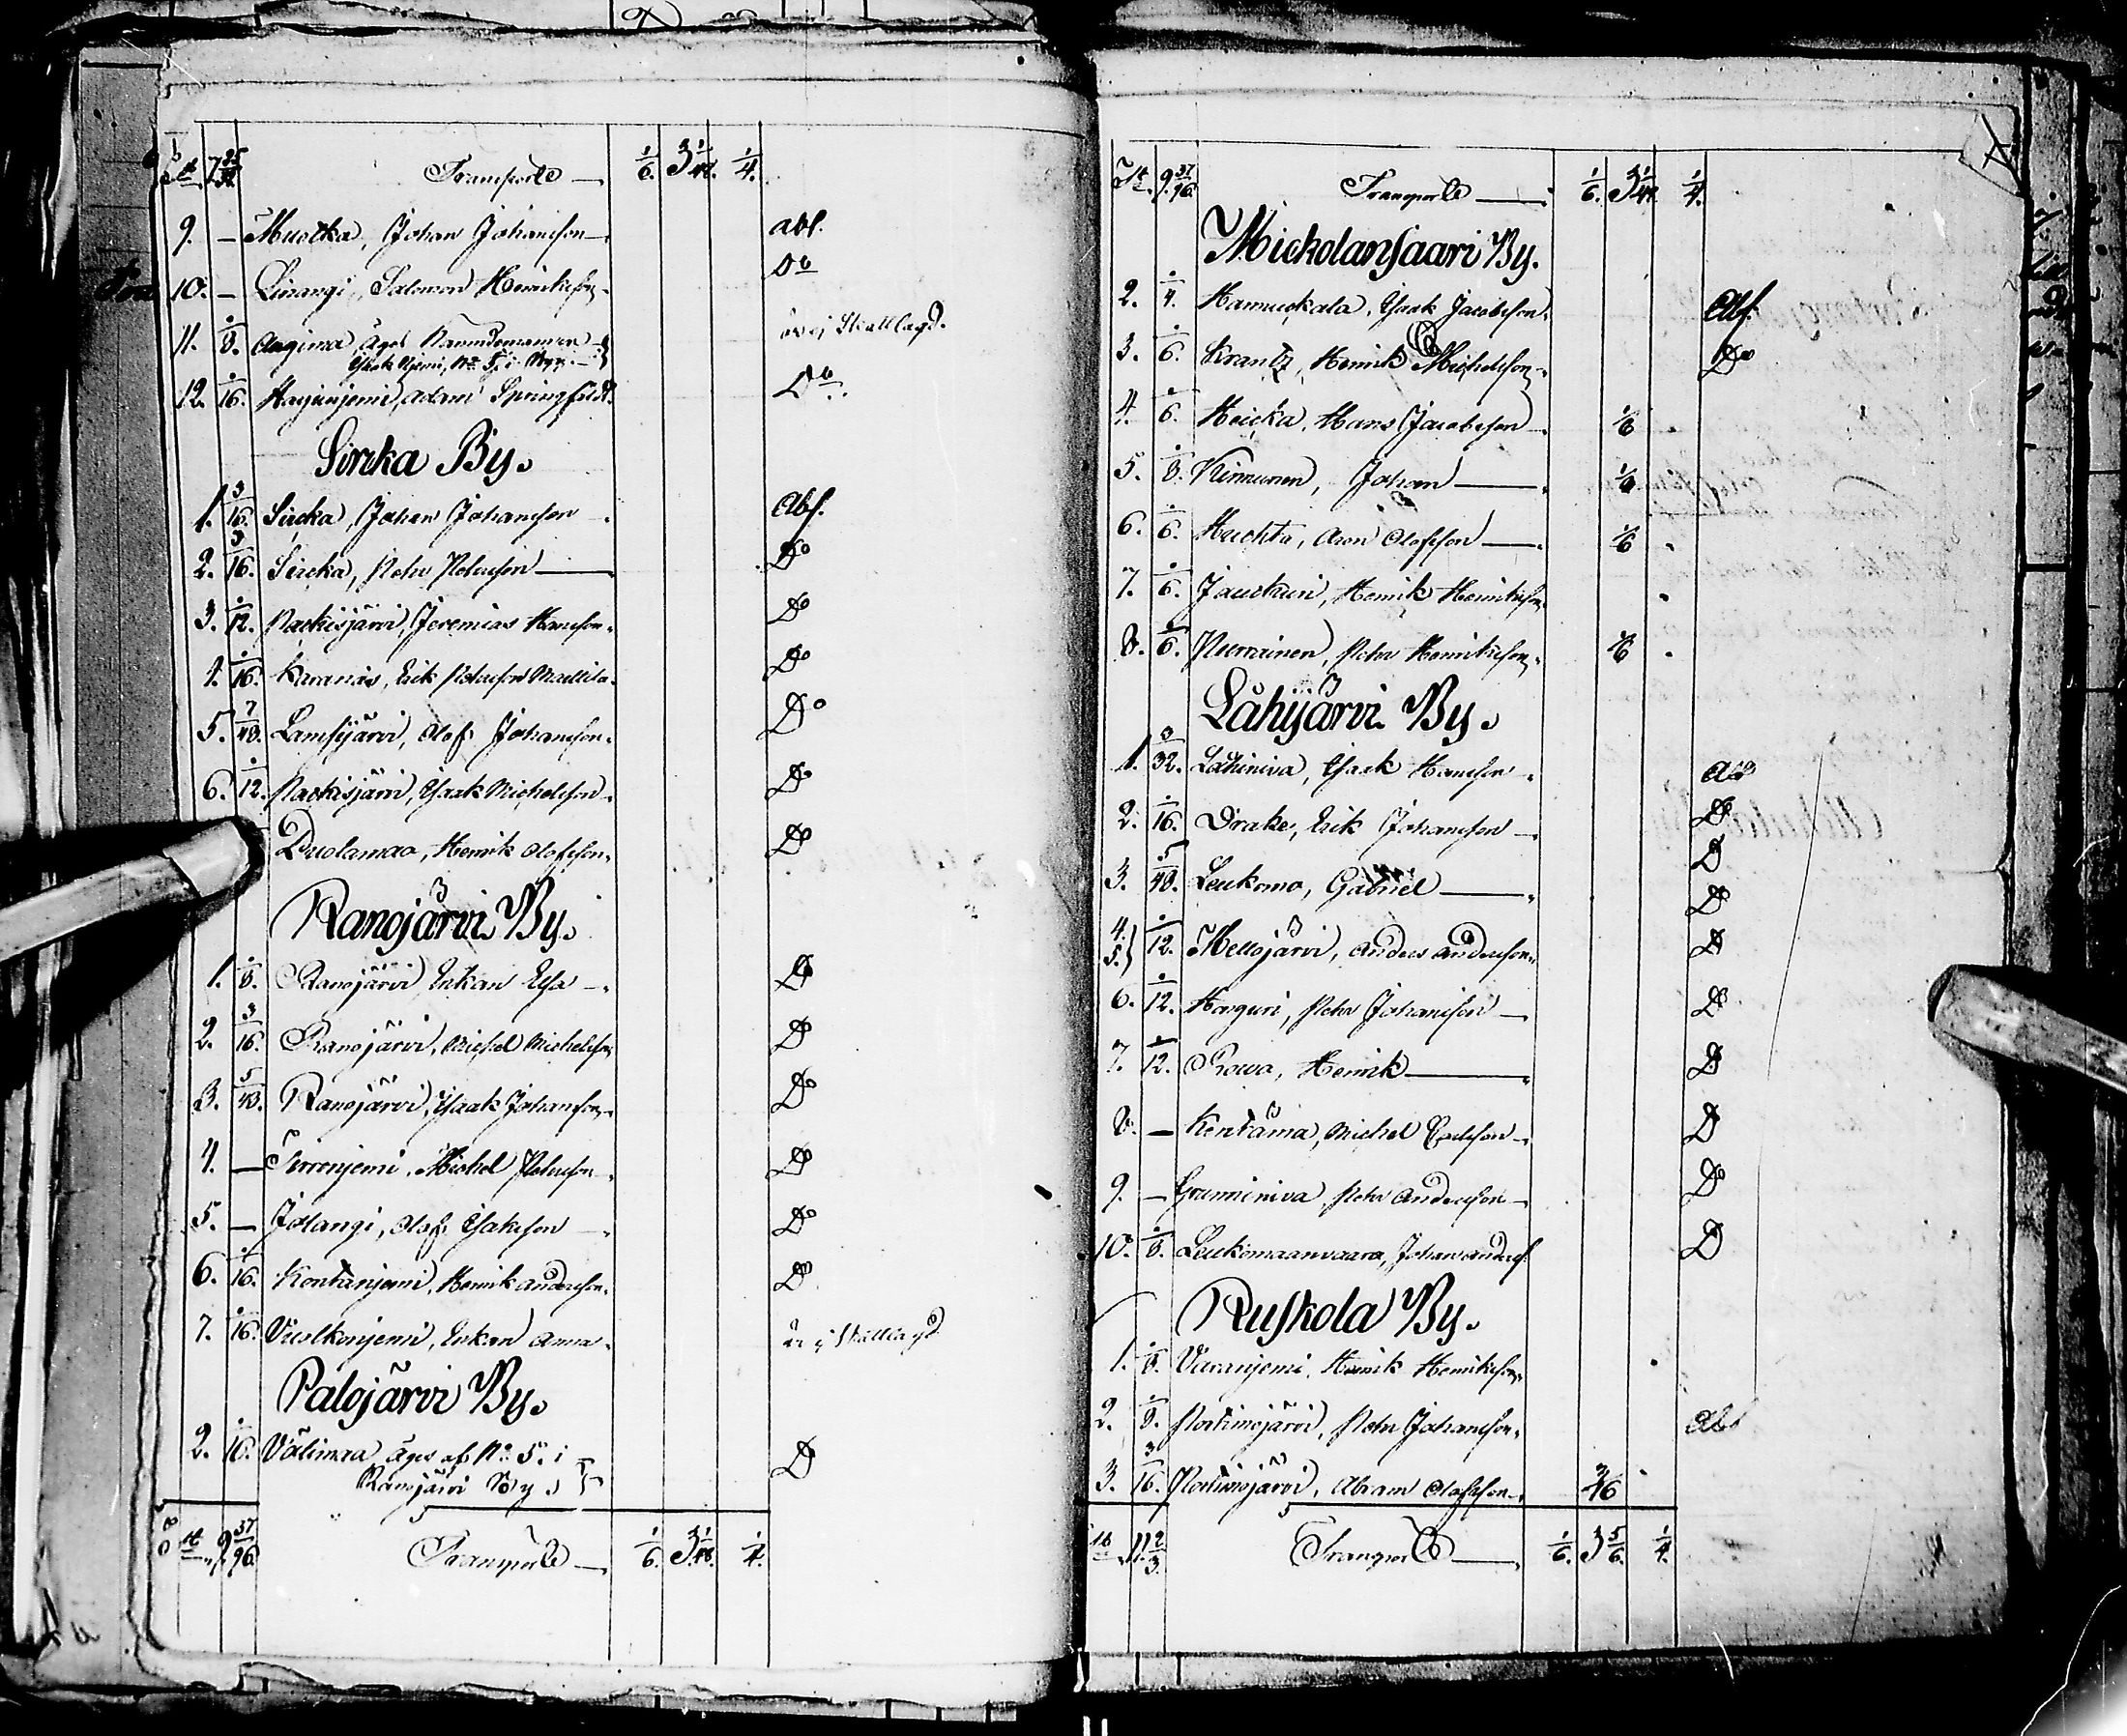 7 25/32 Transporte — 1/6. 3 1/48. 1/4.
9. — Muotka, Johan Johansson — abs.
10. — Linangi, Salomon Henriksson — Do
11. 1/8. Äges Länsman är ej Skattlagd.
Isaak Niemi, No 5, i
12. 1/16. Harjunjemi, Adam Springfeldt. Do
Sircka By.
1. 3/16. Sircka, Johan Johansson — Abs.
2. 3/16. Sircka, Petter Petersson — Do
3. 1/12. Packisjärvi, Jeremias Hansson. Do
4. 1/16. Karanis, Erik Petersson Do
5. 7/48. Lamsijärvi, Olof Johansson. Do
6. 1/12. Packisjärvi, Isaak Michelsson. Do
Duolamao, Henrik Olofsson. Do
Ranojärvi By.
1. 1/8. Ranojärvi Enkan Elsa — Do
2. 3/16. Ranojärvi, Michel Michelsson Do
3. 5/48. Ranojärvi, Isaak Johansson — Do
4. — Michel Petersson — Do
5. — Jolangi, Olof Isaksson — Do
6. 1/16. Kontanjemi, Henrik Andersson. Do
7. 1/16. Vuolkonjemi, Enkan Anna. är ej Skattlagd
Palojärvi By.
2. 1/16. Välimaa äges af No 5. i
Ranojärvi By. Do
9 37/96. Transporte — 1/6. 3 1/48. 1/4.
9 37/96. Transporte — 1/6. 3 1/48. 1/4.
Mickolansaari By.
2. 1/4. Hannukala, Isaak Jacobsson. Abs.
3. 1/6. Krantz, Henrik Michelsson — Do
4. 1/6. Heicka, Hans Jacobsson — 1/6
5. 1/8. Kinnunen, Johan — 1/8
6. 1/6. Huchta, Aron Olofsson — 1/6
7. 1/6. Jauckuri, Henrik Henriksson.
8. 1/6. Numainen, Petter Henriksson. 1/6
Låhijärvi By.
1. 3/32. Låhiniva, Isaak Hansson. Abs
2. 1/16. Drake, Erik Johansson — Do
3. 5/48. Leukomo, Gabriel — Do
4. Do
5. 1/12. Mellojärvi, Anders Andersson. Do
6. 1/12. Hanguri, Petter Johansson — Do
7. 1/12. Rowa, Henrik — Do
8. — Kentämä, Michel — Do
9. — Grunniniva, Petter Andersson — Do
10. 1/8. Leukomaanvaara, Johan Anders. Do
Ruskola By.
1. 1/8. Varanjemi, Henrik Henriksson.
2. 1/8. Portimojärvi, Petter Johansson. Abs
3. 3/16. Portimojärvi, Abram Olofsson — 3/16
11 2/3. Transporte — 1/6. 3 5/6. 1/4.